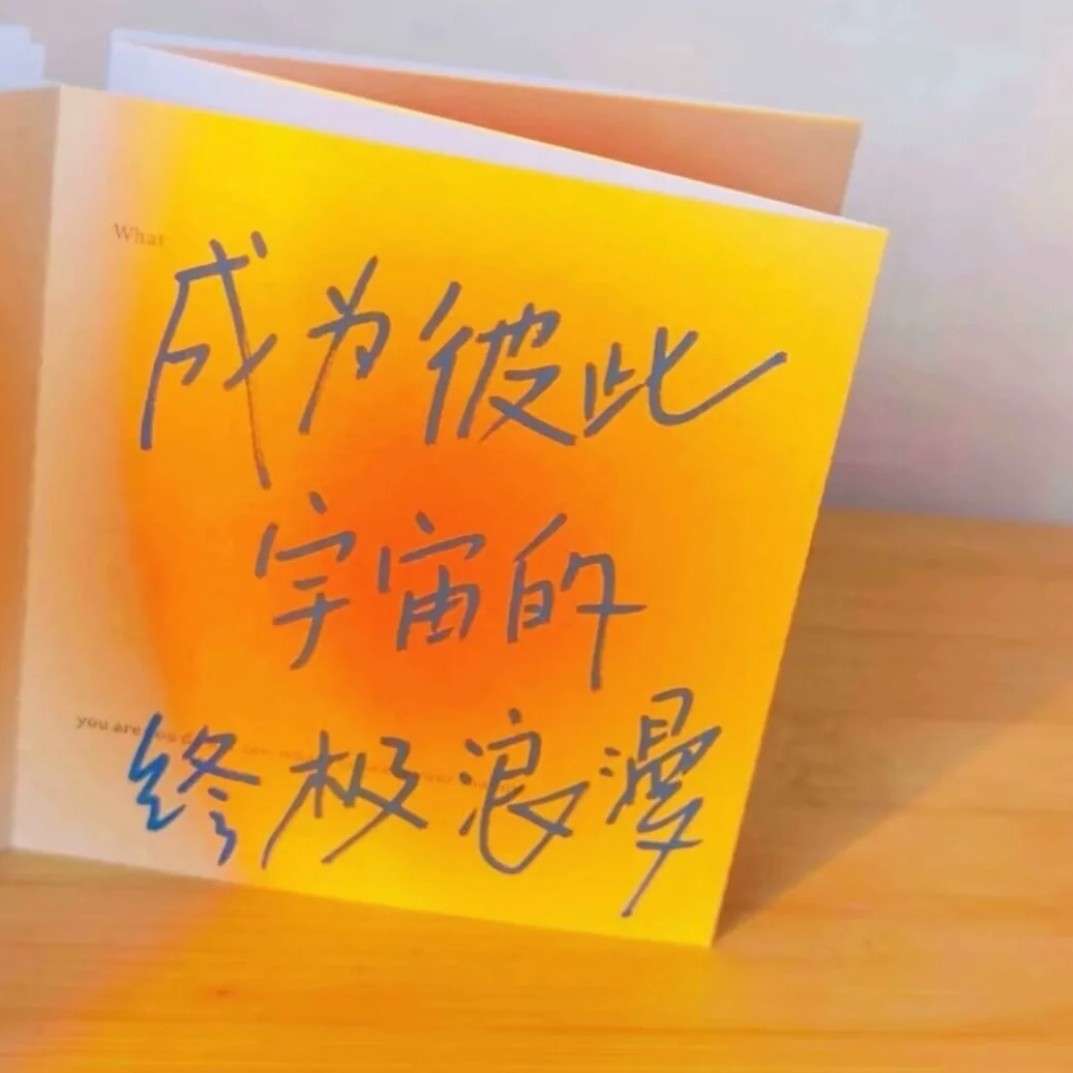 What
成为彼此
宇宙的
you are
终极浪漫